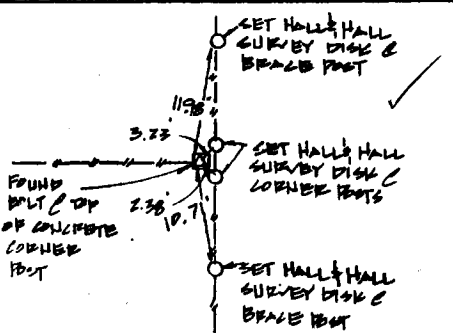 SET HALL & HALL
SURVEY DISK @
BRACE POST
11.98'
3.23'
SET HALL & HALL
SURVEY DISK @
CORNER POSTS
FOUND
BOLT @ TOP
OF CONCRETE
CORNER
POST
2.38'
10.7'
SET HALL & HALL
SURVEY DISK @
BRACE POST